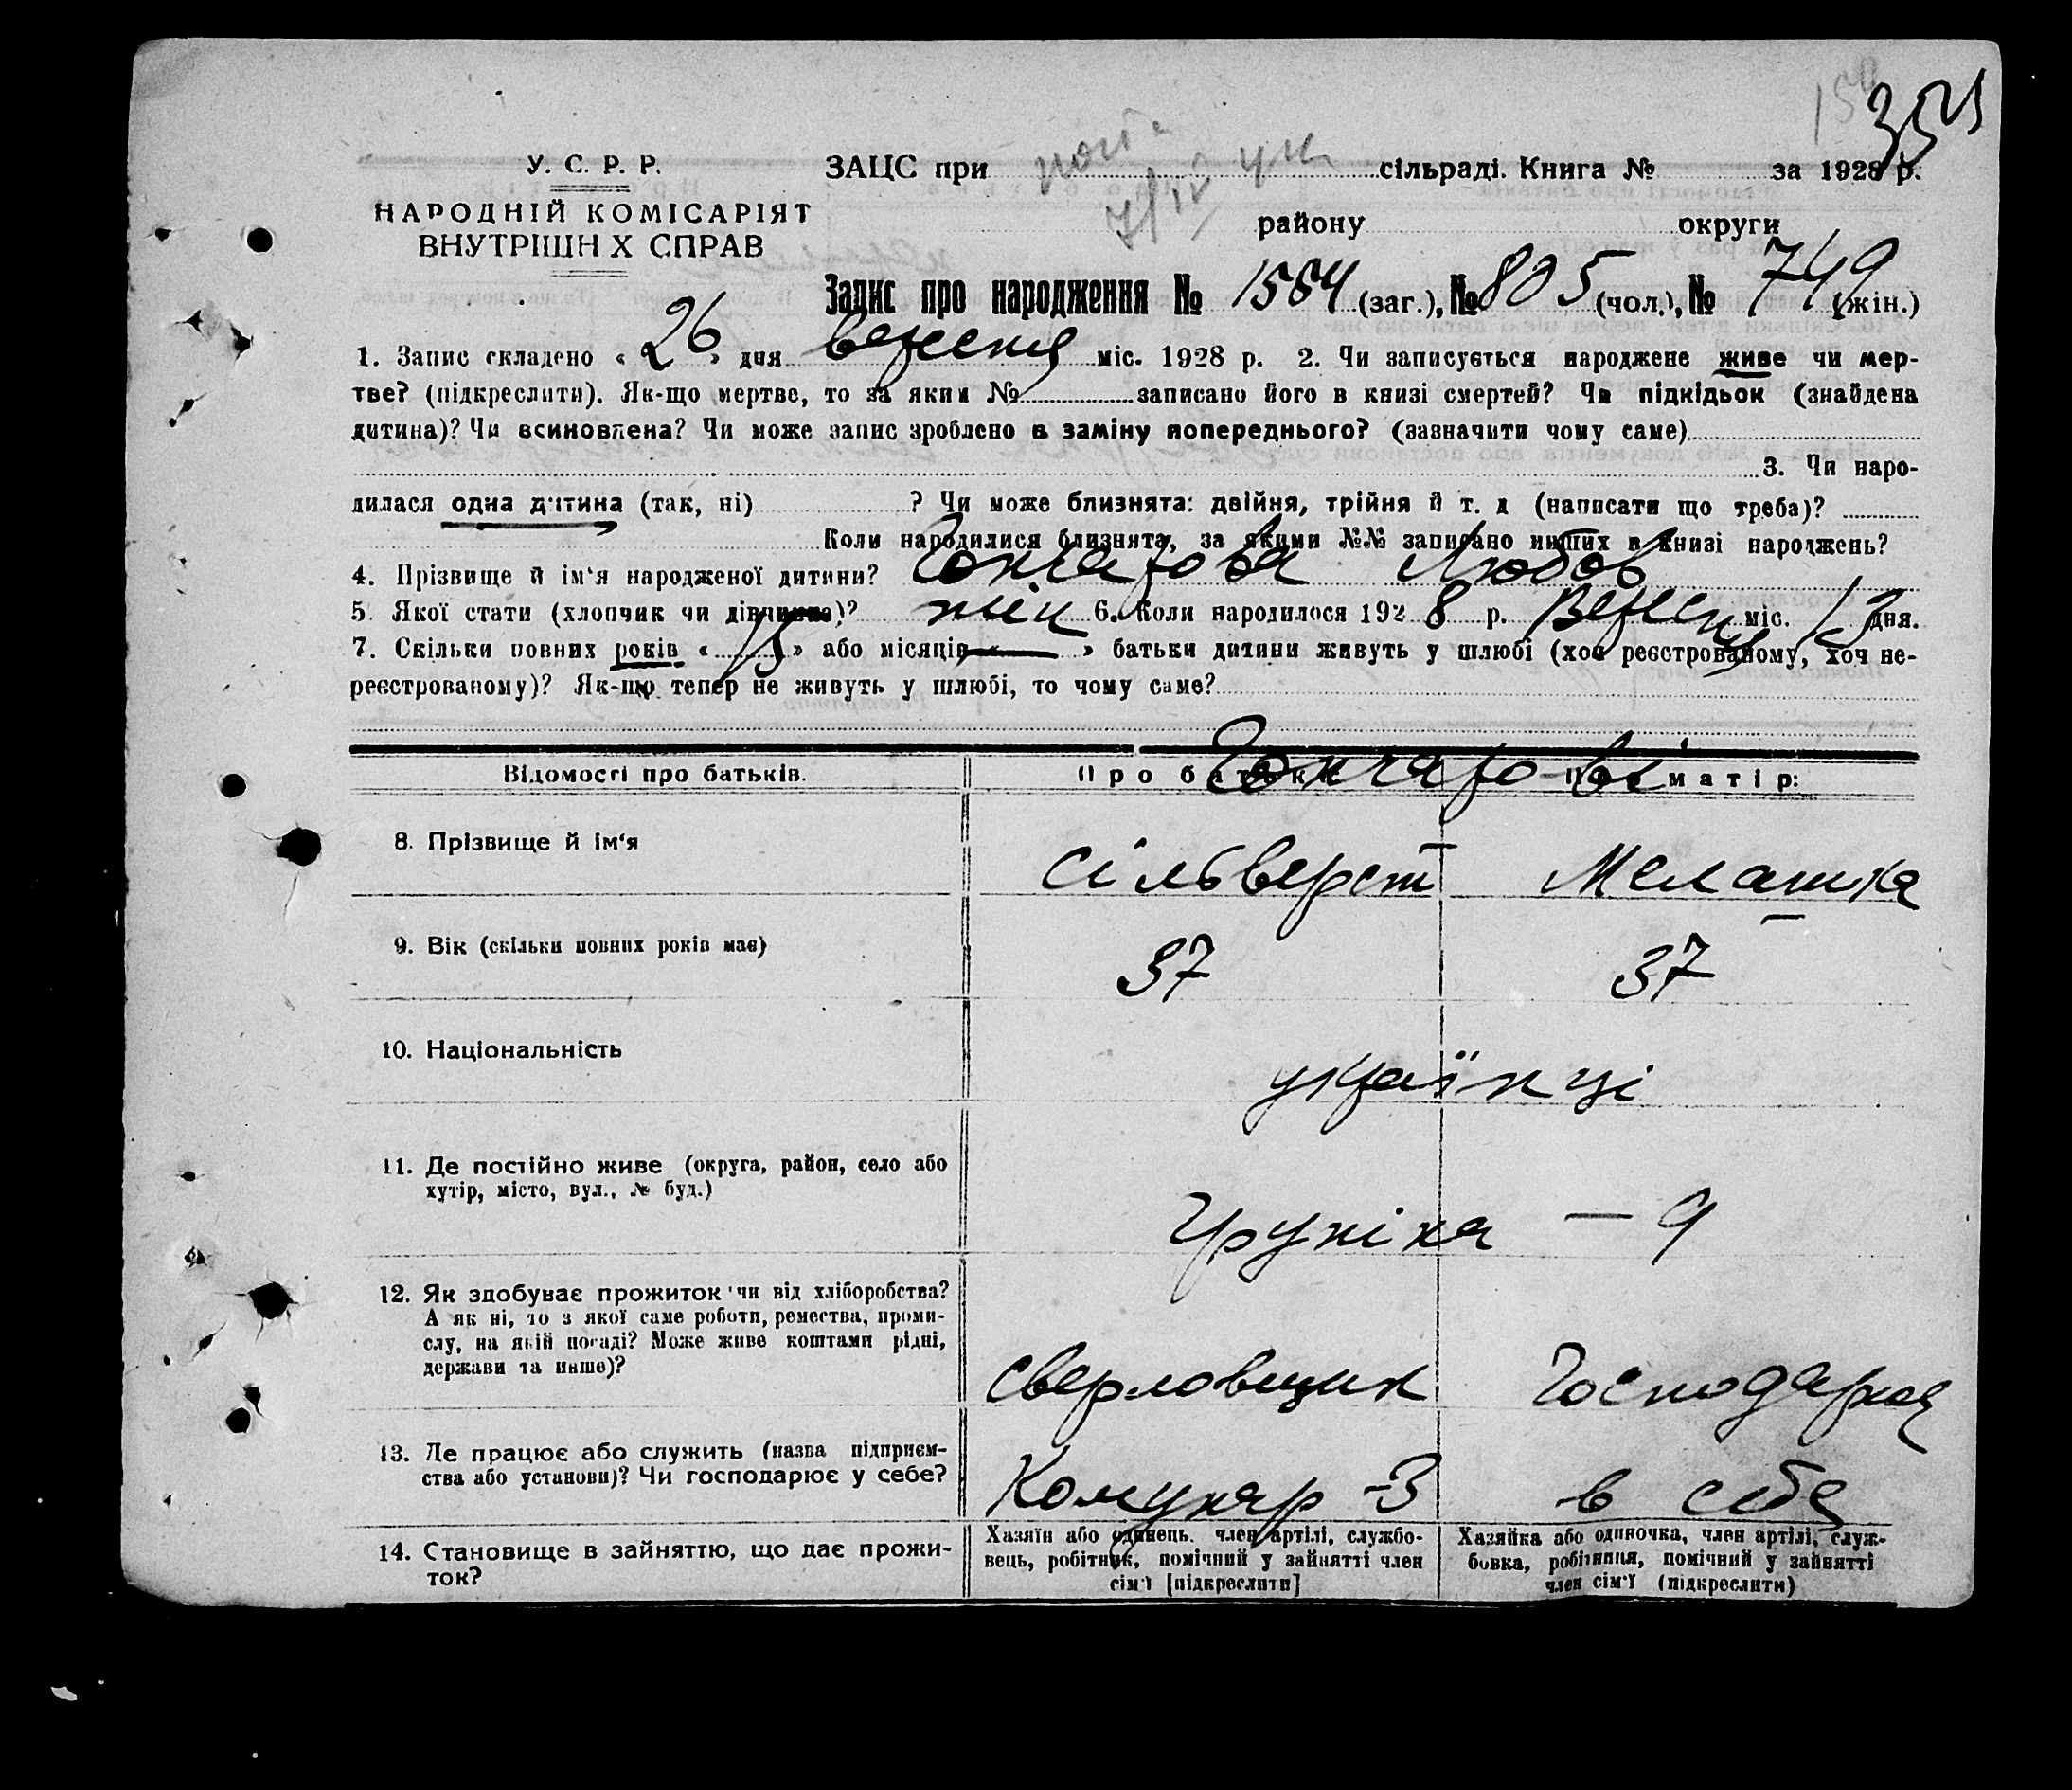 35
У. С. Р. Р.
НАРОДНІЙ КОМІСАРІЯТ
ВНУТРІШН Х СПРАВ
ЗАЦС при сільраді. Книга № за 1928 р.
району округи
Запис про народження № 1554 (заг.), № 805 (чол.), № 749 (жін.)
1. Запис складено « 26 » дня вересня міс. 1928 р. 2. Чи записується народжене живе чи мер-
тве? (підкреслити). Як-що мертве, то за яким № записано його в книзі смертей? Чи підкідьок (знайдена
дитина)? Чи всиновлена? Чи може запис зроблено в заміну попереднього? (зазначити чому саме)
3. Чи наро-
дилася одна дитина (так, ні) ? Чи може близнята: двійня, трійня й т. д (написати що треба)?
Коли народилися близнята, за якими №№ записано инших в книзі народжень?
4. Прізвище й ім‘я народженої дитини? Гончарова Любов
5. Якої стати (хлопчик чи дівчинка)? жін 6. Коли народилося 1928 р. Вересня міс. 13 дня.
7. Скільки повних років « 15 » або місяців « — » батьки дитини живуть у шлюбі (хоч реєстрованому, хоч не-
реєстрованому)? Як-що тепер не живуть у шлюбі, то чому саме?
Відомості про батьків. Про батька: Про матір:
Гончарові
8. Прізвище й ім‘я Сільверст Мелашка
9. Вік (скільки повних років має) 37 37
10. Національність українці
11. Де постійно живе (округа, район, село або
хутір, місто, вул., № буд.)
— 9
12. Як здобуває прожиток чи від хліборобства?
А як ні, то з якої саме роботи, ремества, проми-
слу, на якій посаді? Може живе коштами рідні,
держави та инше)?
сверловщик Господарка
13. Де працює або служить (назва підприєм-
ства або установи)? Чи господарює у себе?
Комунар -З в себе
14. Становище в зайняттю, що дає прожи-
ток?
Хазяїн або одинець. член артілі, службо-
вець, робітник, помічний у зайнятті член
сім‘ї [підкреслити]
Хазяйка або одиночка, член артілі, служ-
бовка, робітниця, помічний у зайнятті
член сім‘ї (підкреслити)